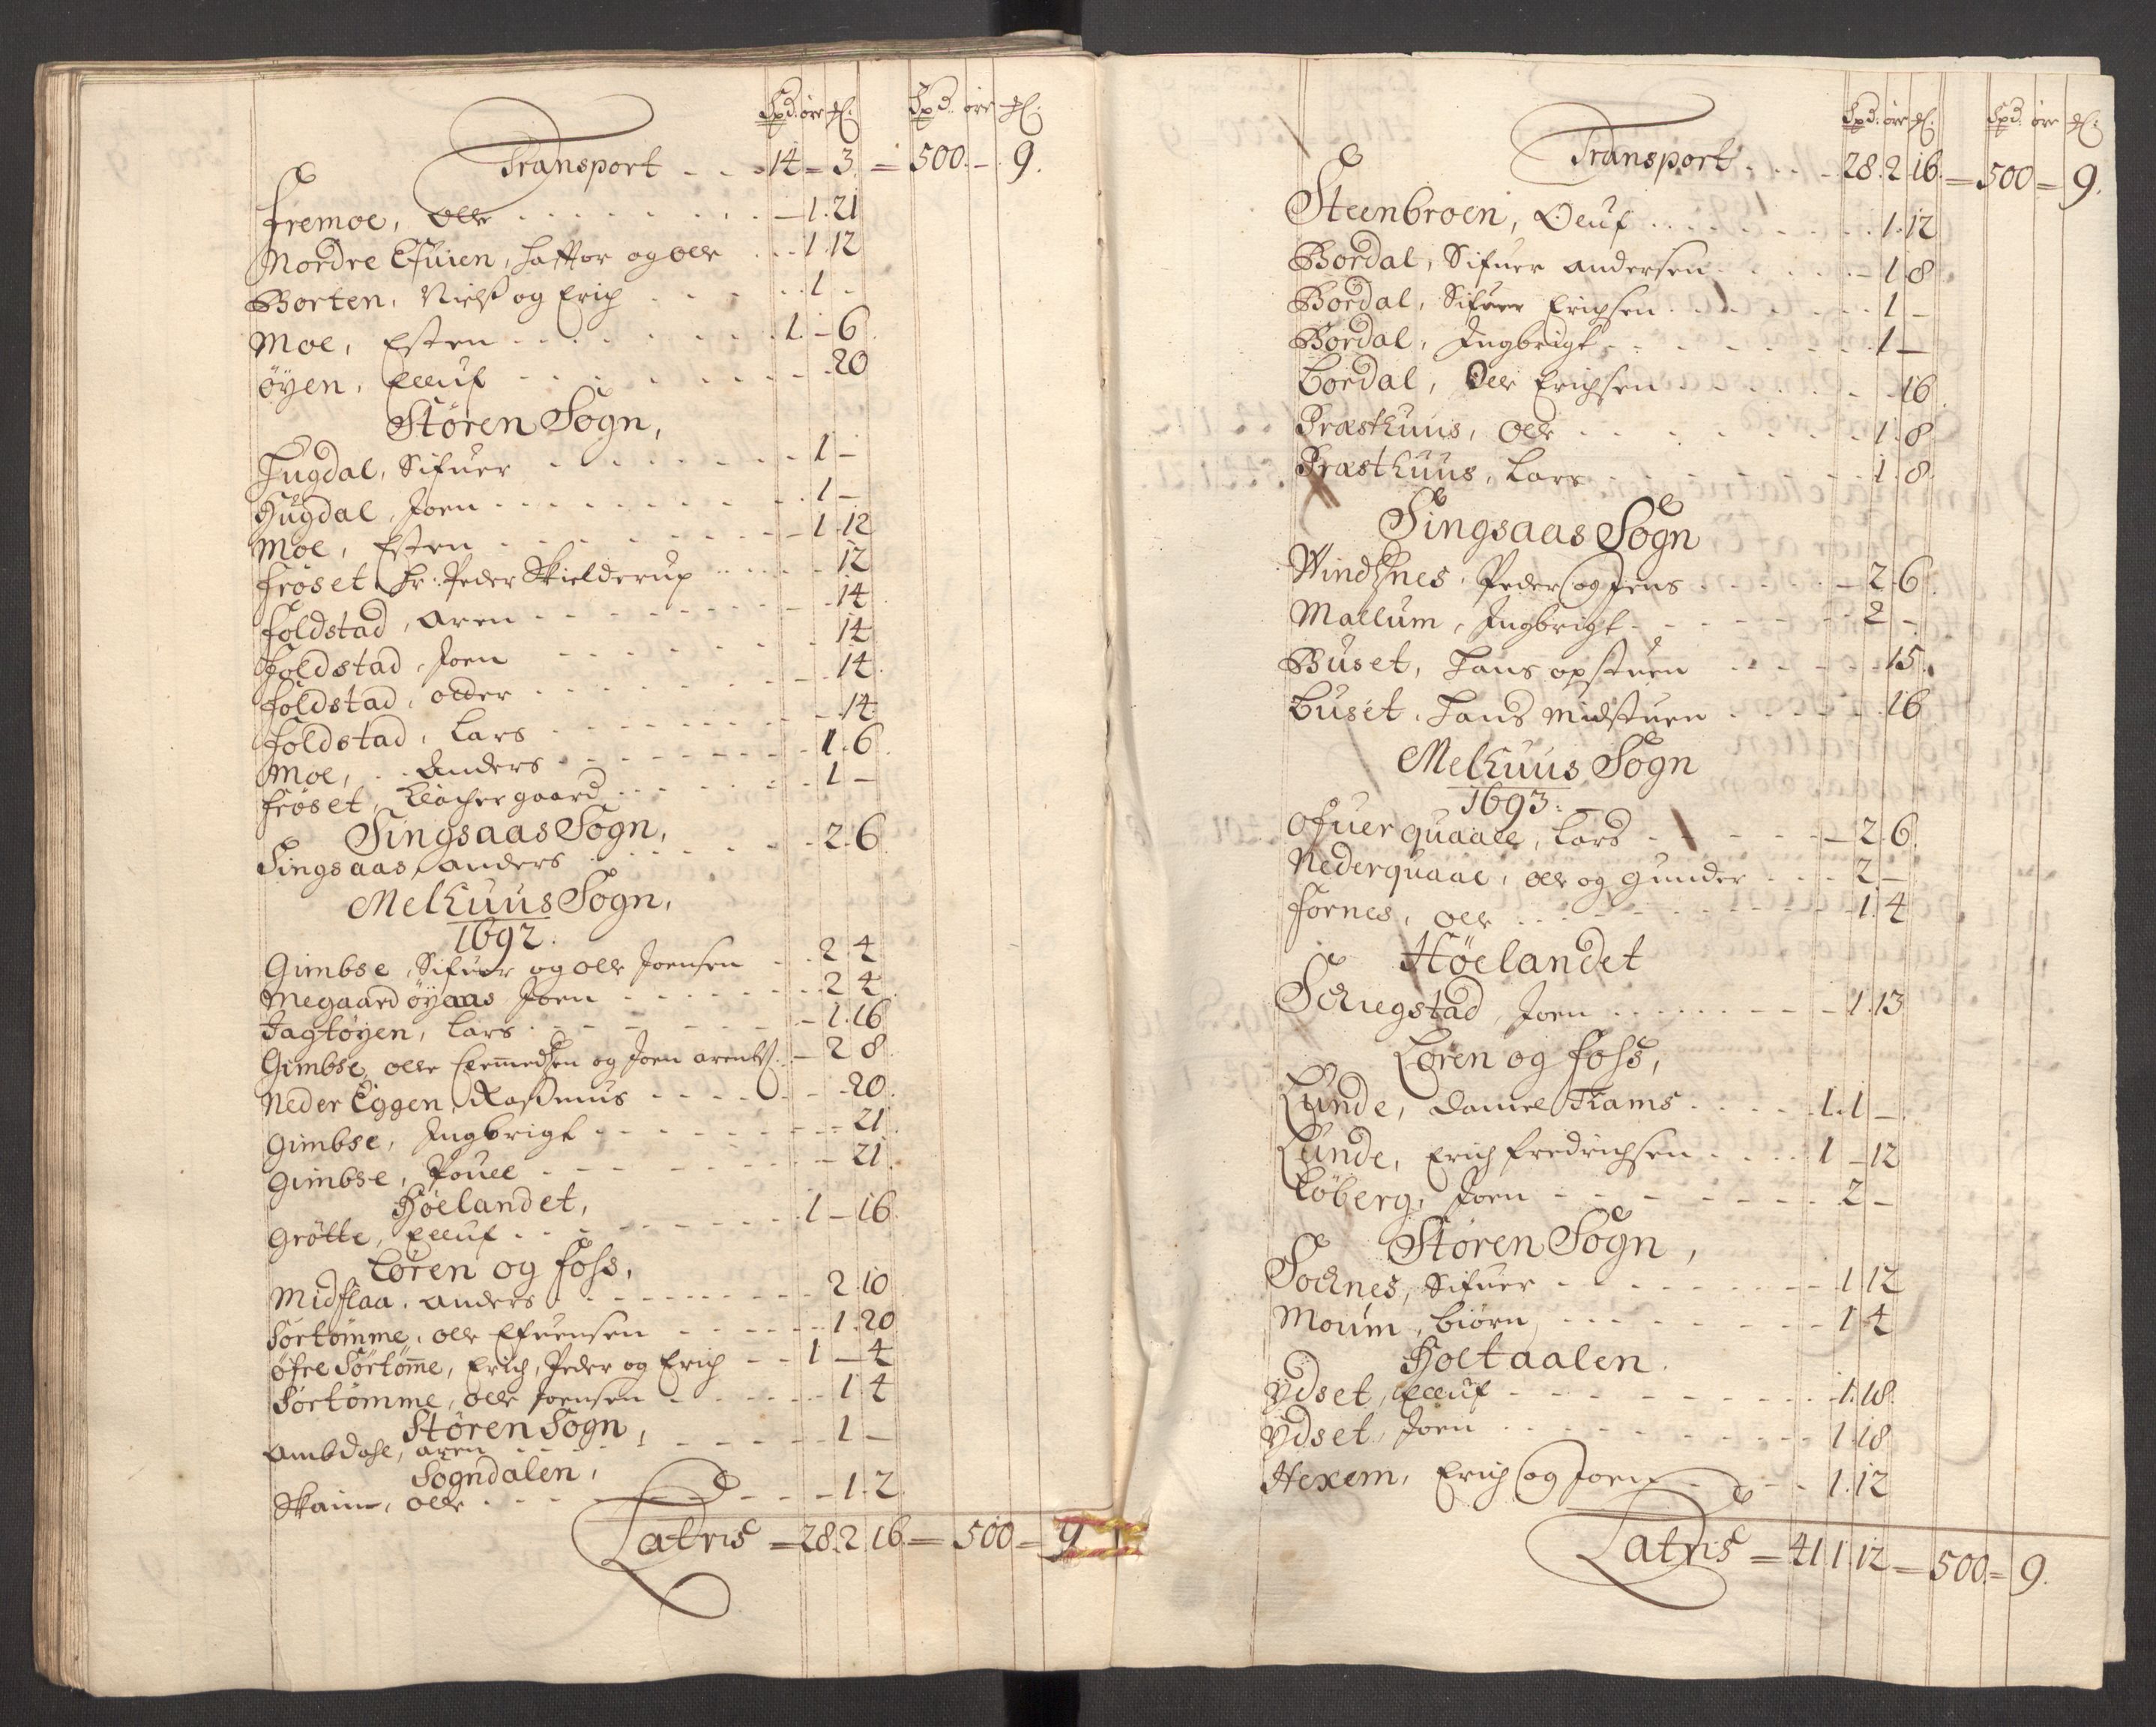 Spd. ört ₰. Spd. ört ₰.
Transport - - 14 - 3. = 500. - 9.
Fremoe, Olle - 1. 21
Nordre Efuien, Haftor og Olle 1. 12
Borten, Nielß og Erich 1 -
Moe, Esten 1. - 6
Öyen, Elluf 20
Stören Sogn,
Hugdal, Sifuer 1 -
Hugdal, Joen 1 -
Moe, Esten 1. 12
Fröset Hr: Peder Skielderup 12
Foldstad, Aren 14
Foldstad, Joen 14
Foldstad, Older 14
Foldstad, Lars 14
Moe, Anders 1. 6
Fröset, Klochergaard 1 -
Singsaas Sogn,
Singsaas, Anders 2. 6
Melhuus Sogn,
1692.
Gimbse, Sifuer og Olle Joensen 2 4
Megaard öyaas Joen 2 4
Jagtöyen, Lars 1. 16
Gimbse, Olle Clemmedsen og Joen Arents. 2 8
Neder Eggen, Rasmus 20
Gimbse, Ingbrigt 21
Gimbse, Pouel 21
Höelandet,
Grötte, Elluf 1 - 16
Leren og Foss,
Midflaa, Anders 2. 10
Sörtömme, Olle Efuensen 1. 20
öfre Sörtöme, Erich, Peder og Erich 1 - 4
Sörtömme, Olle Joensen 1 4
Stören Sogn,
Ambdahl, Aren 1 -
Sogndalen,
Skaim, Olle 1. 2
Latris = 28. 2. 16. = 500 = 9
Spd. ört ₰. Spd. ört ₰.
Transport 28. 2 16. = 500 = 9.
Steenbroen, Oluf 1. 12
Bordal, Sifuer Andersen 1 8
Bordal, Sifuer Erichsen 1 -
Bordal, Ingbrigt 1 -
Bordal, Olle Erichsen 16
Præsthuus, Olle 1. 8
Præsthuus, Lars 1. 8
Singsaas Sogn
Windsnes, Peder og Jens 2. 6
Mallum, Ingbrigt 2 -
Buset, Hans opstuen 15
Buset, Hans Midstuen 16
Melhuus Sogn
1693:
Ofuer quaale, Lars 2. 6.
Nederquaal, Olle og Gunder 2 -
Fornes, Olle 1. 4
Höelandet
Schiegstad, Joen 1. 13
Leren og Foss,
Lunde, Daniel Trams 1. 1 -
Lunde, Erich Fredrichsen 1 - 12
Löberg, Joen 2 -
Stören Sogn,
Sochnes, Sifuer 1. 12
Moum, Biörn 1 4
Holtaalen.
Ydset, Elluf 1. 18
Ydset, Joen 1. 18
Hexem, Erich og Joen 1. 12
Latris = 41 1. 12 = 500. = 9.